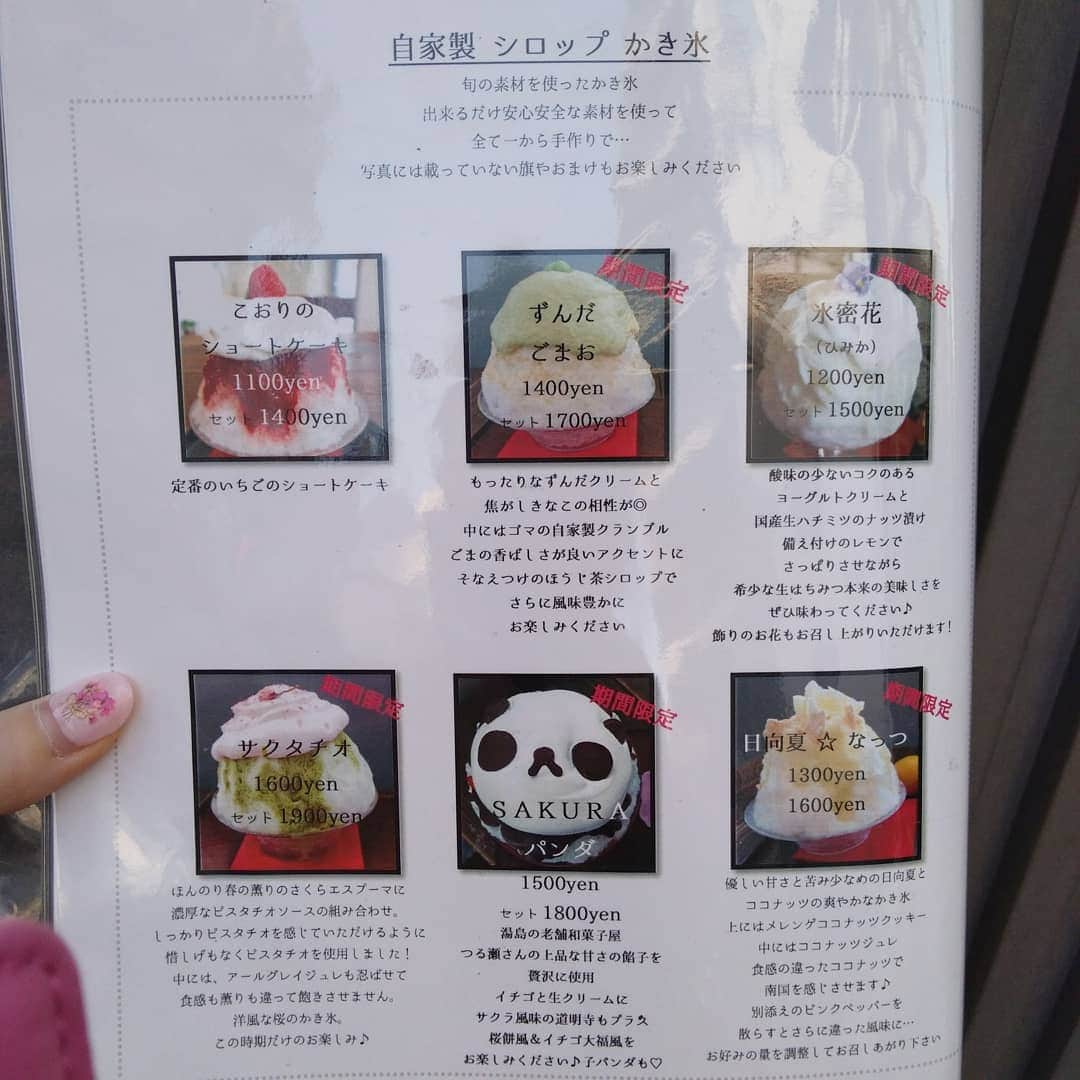 自家製 シロップ かき氷
旬の素材を使ったかき氷
出来るだけ安心安全な素材を使って
全て一から手作りで…
写真には載っていない旗やおまけもお楽しみください
こおりの
ショートケーキ
1100yen
セット 1400yen
定番のいちごのショートケーキ
期間限定
ずんだ
ごまお
1400yen
セット 1700yen
もったりなずんだクリームと
焦がしきなこの相性が◎
中にはゴマの自家製クランブル
ごまの香ばしさが良いアクセントに
そなえつけのほうじ茶シロップで
さらに風味豊かに
お楽しみください
期間限定
氷密花
(ひみか)
1200yen
セット 1500yen
酸味の少ないコクのある
ヨーグルトクリームと
国産生ハチミツのナッツ漬け
備え付けのレモンで
さっぱりさせながら
希少な生はちみつ本来の美味しさを
ぜひ味わってください♪
飾りのお花もお召し上がりいただけます!
期間限定
サクタチオ
1600yen
セット 1900yen
ほんのり春の薫りのさくらエスプーマに
濃厚なピスタチオソースの組み合わせ。
しっかりピスタチオを感じていただけるように
惜しげもなくピスタチオを使用しました!
中には、アールグレイジュレも忍ばせて
食感も薫りも違って飽きさせません。
洋風な桜のかき氷。
この時期だけのお楽しみ♪
期間限定
SAKURA
パンダ
1500yen
セット 1800yen
湯島の老舗和菓子屋
つる瀬さんの上品な甘さの餡子を
贅沢に使用
イチゴと生クリームに
サクラ風味の道明寺もプラ久
桜餅風&イチゴ大福風を
お楽しみください♪子パンダも♡
期間限定
日向夏 ☆ なっつ
1300yen
1600yen
優しい甘さと苦み少なめの日向夏と
ココナッツの爽やかなかき氷
上にはメレンゲココナッツクッキー
中にはココナッツジュレ
食感の違ったココナッツで
南国を感じさせます♪
別添えのピンクペッパーを
散らすとさらに違った風味に…
お好みの量を調整してお召しあがり下さい